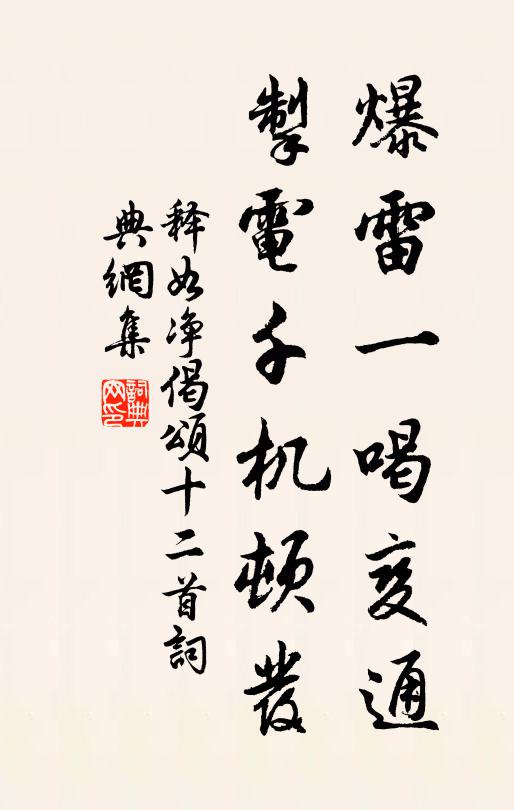 爆雷一喝变通
掣電千机頓發
释如净偈頌十二首詞
典網集
詞典網印